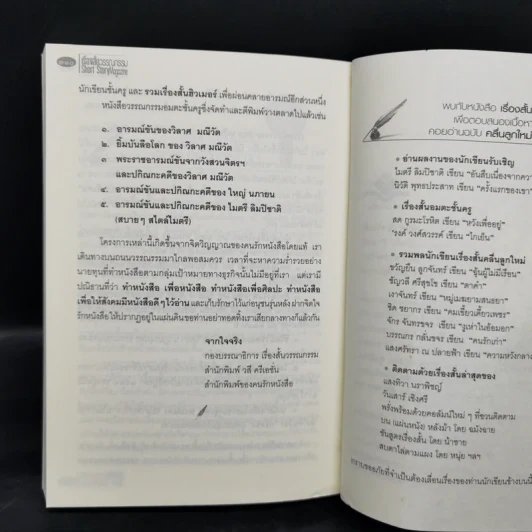 เรื่องสั้นวรรณกรรม
Short Story Magazine
นักเขียนชั้นครู และ รวมเรื่องสั้นฮิวเมอร์ เพื่อผ่อนคลายอารมณ์อีกส่วนหนึ่ง
หนังสือวรรณกรรมอมตะชั้นครูซึ่งจัดทำและตีพิมพ์วางตลาดไปแล้วเช่น
๑. อารมณ์ขันของวิลาศ มณีวัต
๒. ยิ้มบันลือโลก ของ วิลาศ มณีวัต
๓ พระราชอารมณ์ขันจากวังสวนจิตรฯ
และปกิณกะคดีของวิลาศ มณีวัต
๔. อารมณ์ขันและปกิณกะคดีของ ใหญ่ นภายน
๕. อารมณ์ขันและปกิณกะคดีของ ไมตรี ลิมปิชาติ
(สบายๆ สไตล์ไมตรี)
โครงการเหล่านี้เกิดขึ้นจากจิตวิญญาณของคนรักหนังสือโดยแท้ เรา
เดินทางบนถนนวรรณกรรมมาไกลพอสมควร เวลาที่จะหาความร่ำรวยอย่าง
นายทุนที่ทำหนังสือตามกลุ่มเป้าหมายทางธุรกิจนั้นไม่มีอยู่ที่เรา แต่เรามี
ปณิธานที่ว่า ทำหนังสือ เพื่อหนังสือ ทำหนังสือเพื่อศิลปะ ทำหนังสือ
เพื่อให้สังคมมีหนังสือดีๆ ไว้อ่าน และเก็บรักษาไว้แก่อนุชนรุ่นหลัง ฝากจิตใจ
รักหนังสือ ให้ปรากฏอยู่ในแผ่นดิน ขอท่านอย่าทอดทิ้งเราเสียกลางทางก็แล้วกัน
จากใจจริง
กองบรรณาธิการ เรื่องสั้นวรรณกรรม
สำนักพิมพ์ วสี ครีเอชั่น
สำนักพิมพ์ของคนรักหนังสือ
พบกับหนังสือ เรื่องสั้น
เพื่อตอบสนองเนื้อหา
คอยอ่านฉบับ คลื่นลูกใหม่
● อ่านผลงานของนักเขียนรับเชิญ
ไมตรี ลิมปิชาติ เขียน "อันสืบเนื่องจากคว
นิวัติ พุทธประสาท เขียน "ครั้งแรกของเขา"
● เรื่องสั้นอมตะชั้นครู
สด กูรมะโรหิต เขียน "หวังเพื่ออยู่"
'รงค์ วงศ์สวรรค์ เขียน "โกเอ๋น"
● รวมพลนักเขียนเรื่องสั้นคลื่นลูกใหม่
ขวัญยืน ลูกจันทร์ เขียน "อุ้นผู้ไม่มีเรือน"
ชัญวลี ศรีสุขโข เขียน "ตาดำ"
เงาจันทร์ เขียน
ชิด ชยากร เขียน "คมเขี้ยวเดี้ยวเพชร"
จักร จันทรขจร เขียน "รูเห่าในอ้อมอก"
บรรณกร กลั่นขจร เขียน "คนรักเก่า"
แสงศรัทธา ณ ปลายฟ้า เขียน "ความหวังกลาง
● ติดตามด้วยเรื่องสั้นล่าสุดของ
แสงทิวา นราพิชญ์
วันเสาร์ เชิงศรี
พรั่งพร้อมด้วยคอลัมน์ใหม่ ๆ ที่ชวนติดตาม
บน แผ่นหนัง หลังม้า โดย
ชันสูตรเรื่องสั้น โดย น้าชาย
สบตาใส่ตามแผง โดย หนุ่ย ฯลฯ